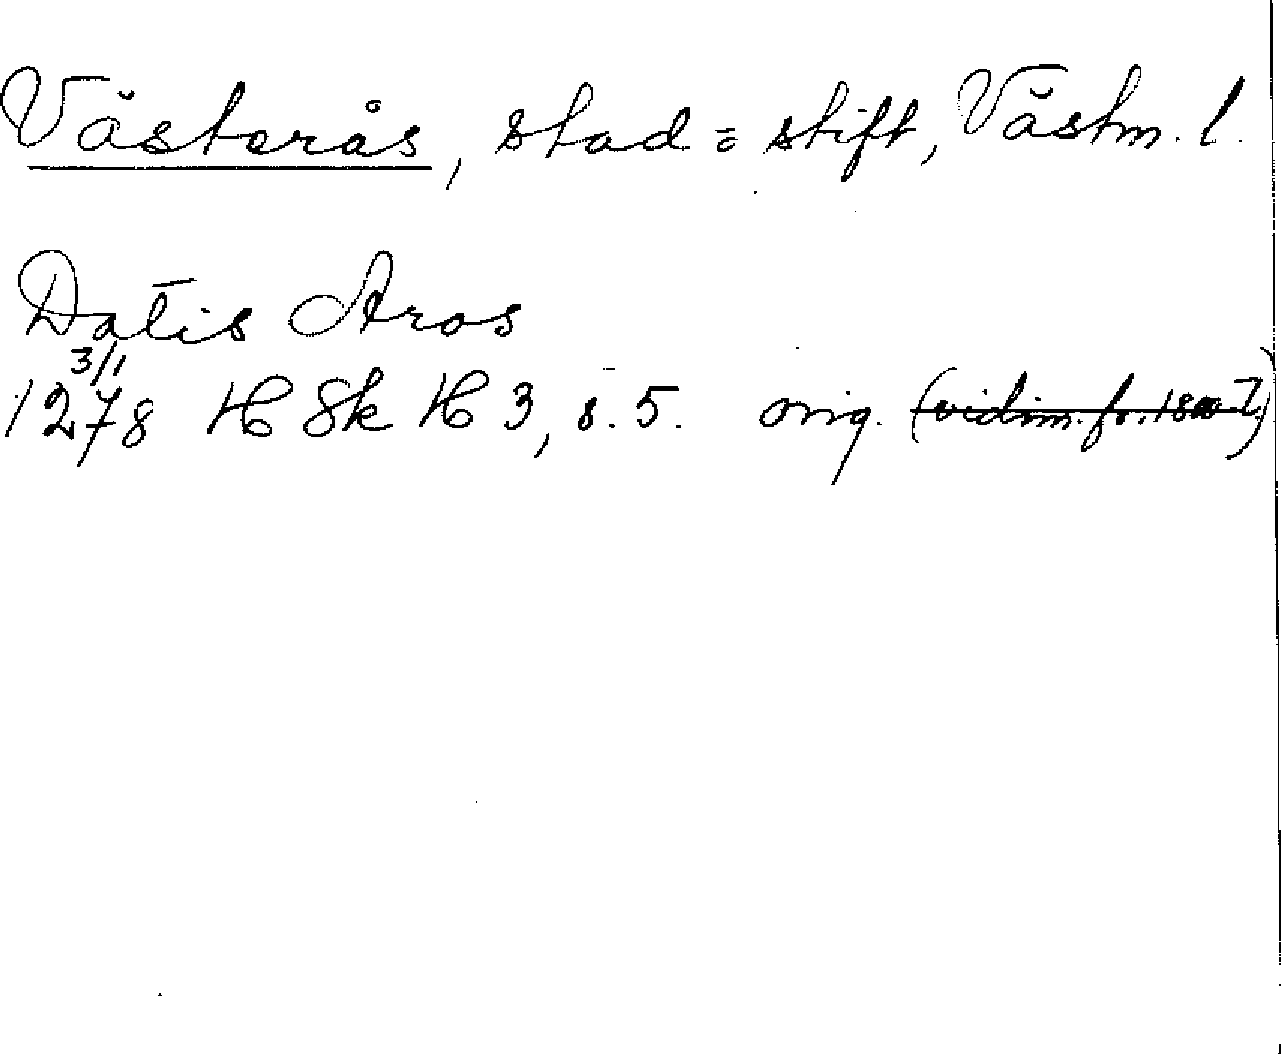 Västerås, stad = stift, Västm. l.
Datis Aros
3/1
1278 H Sk H 3, s. 5. orig. (vidim. fr. 1800-t)